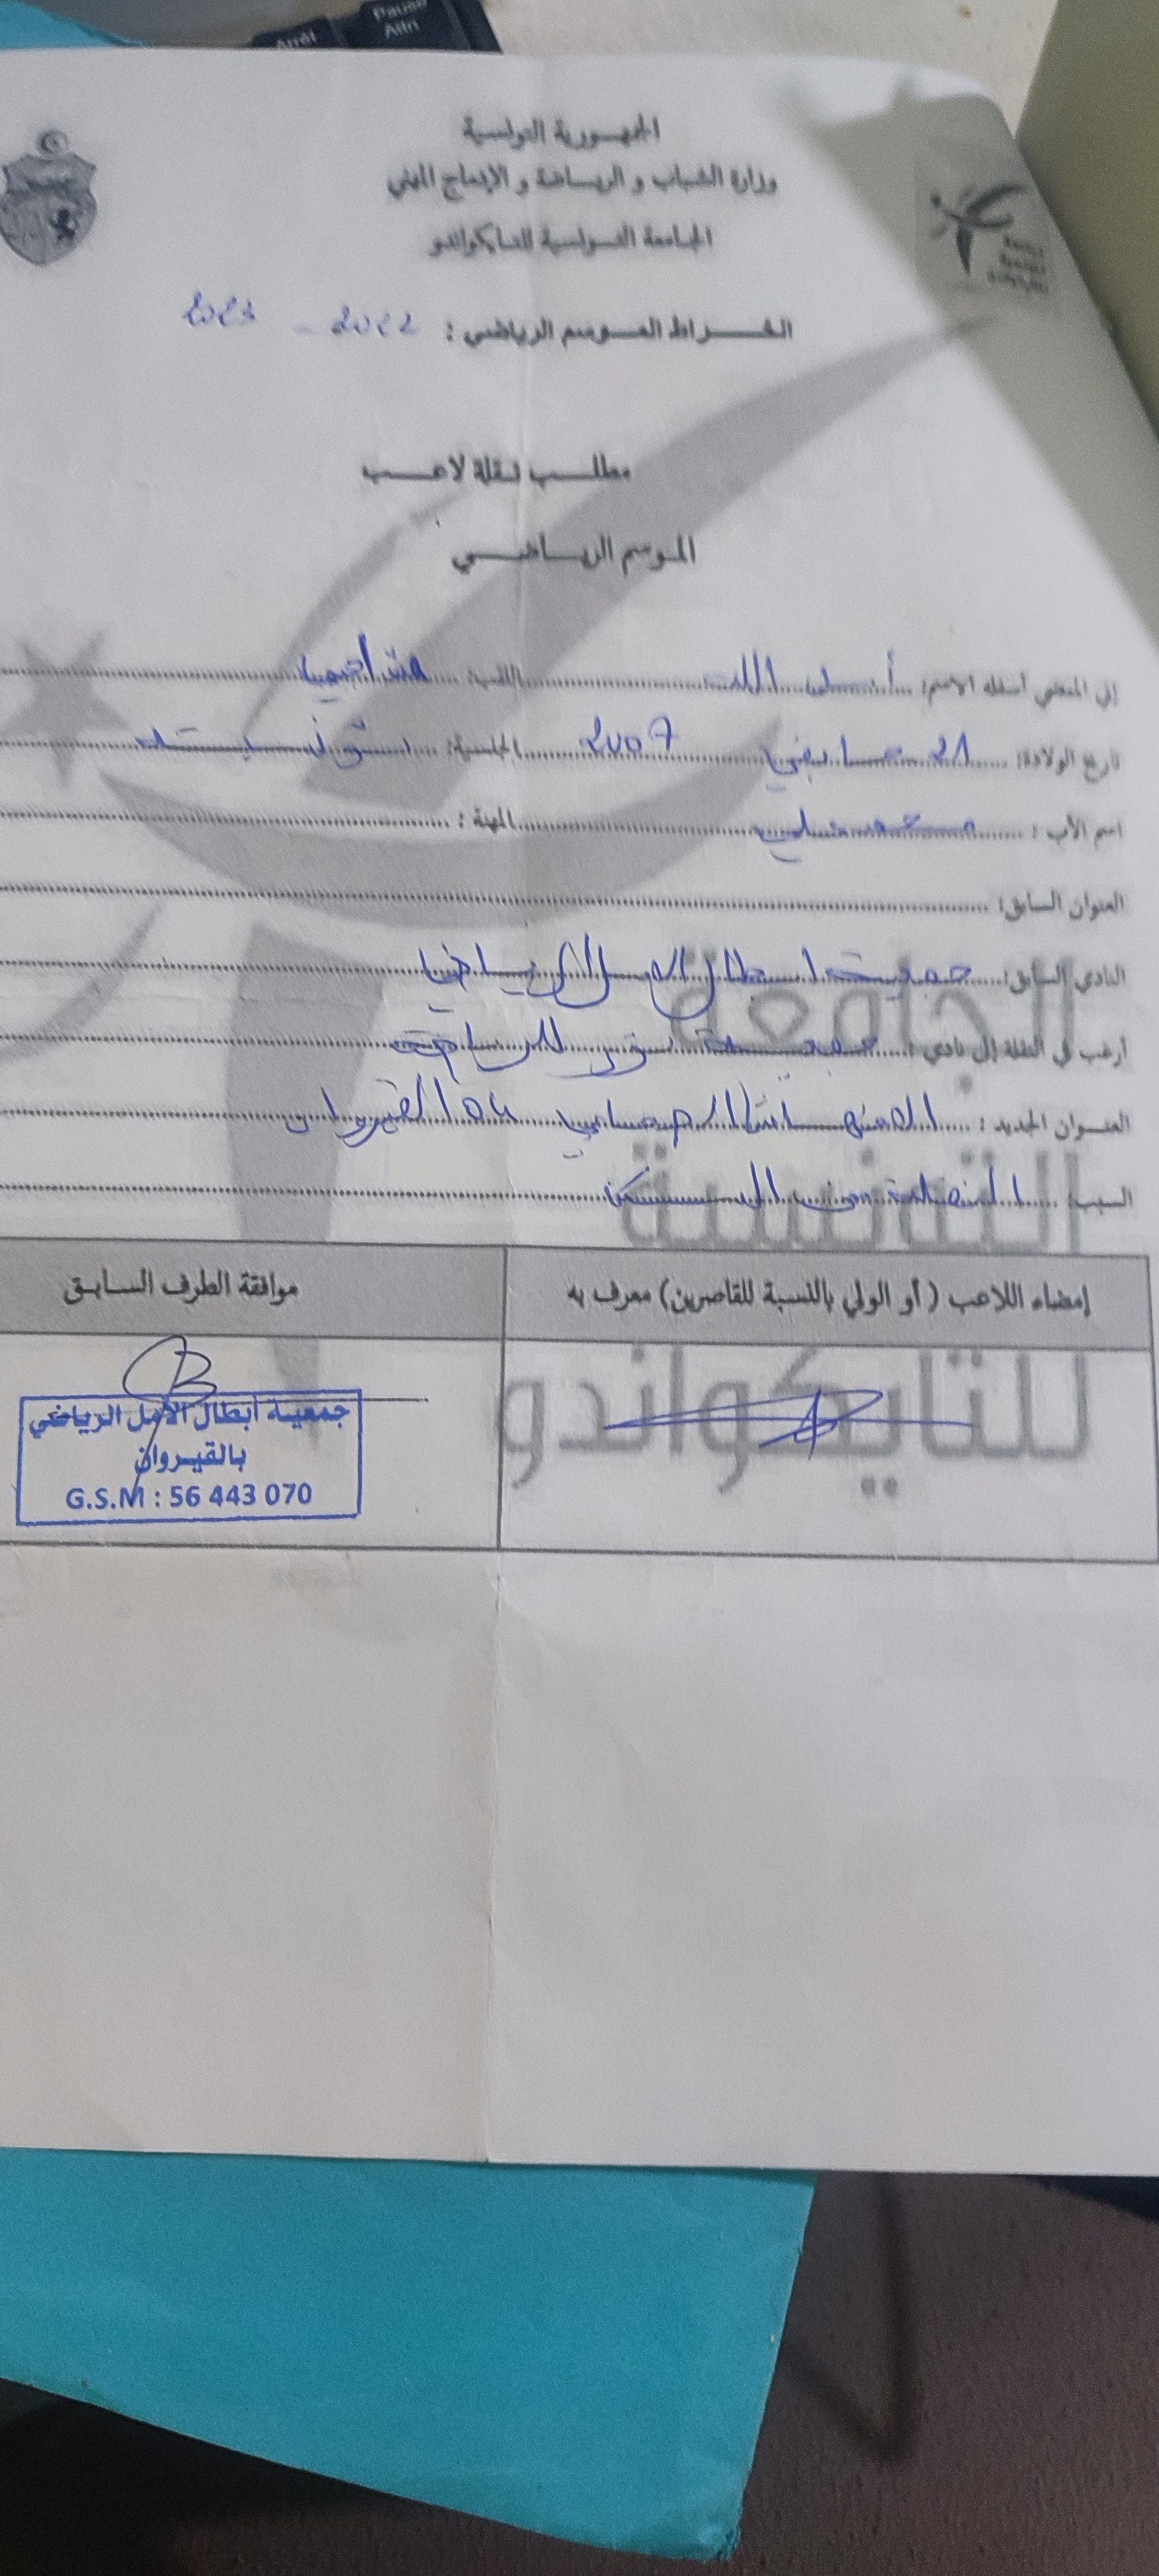 Pause
Attn
Arrêt
الجمهورية التونسية
وزارة الشباب و الرياضة و الإدماج المهني
الجامعة التونسية للتايكواندو
انخراط الموسم الرياضي : 2022 - 2023
مطلب نقلة لاعب
الموسم الرياضي
إني الممضي أسفله الاسم: اللقب:
تاريخ الولادة: 28 جانفي 2007 الجنسية: تونسية
اسم الأب : محمد علي المهنة :
العنوان السابق:
النادي السابق: جمعية أبطال الأمل الرياضي
أرغب في النقلة إلى نادي : جمعية نور للرياضة
العنوان الجديد : القيروان
السبب:
إمضاء اللاعب ( أو الولي بالنسبة للقاصرين) معرف به
موافقة الطرف السابق
جمعية أبطال الأمل الرياضي
بالقيروان
G.S.M : 56 443 070
الجامعة
التونسية
للتايكواندو